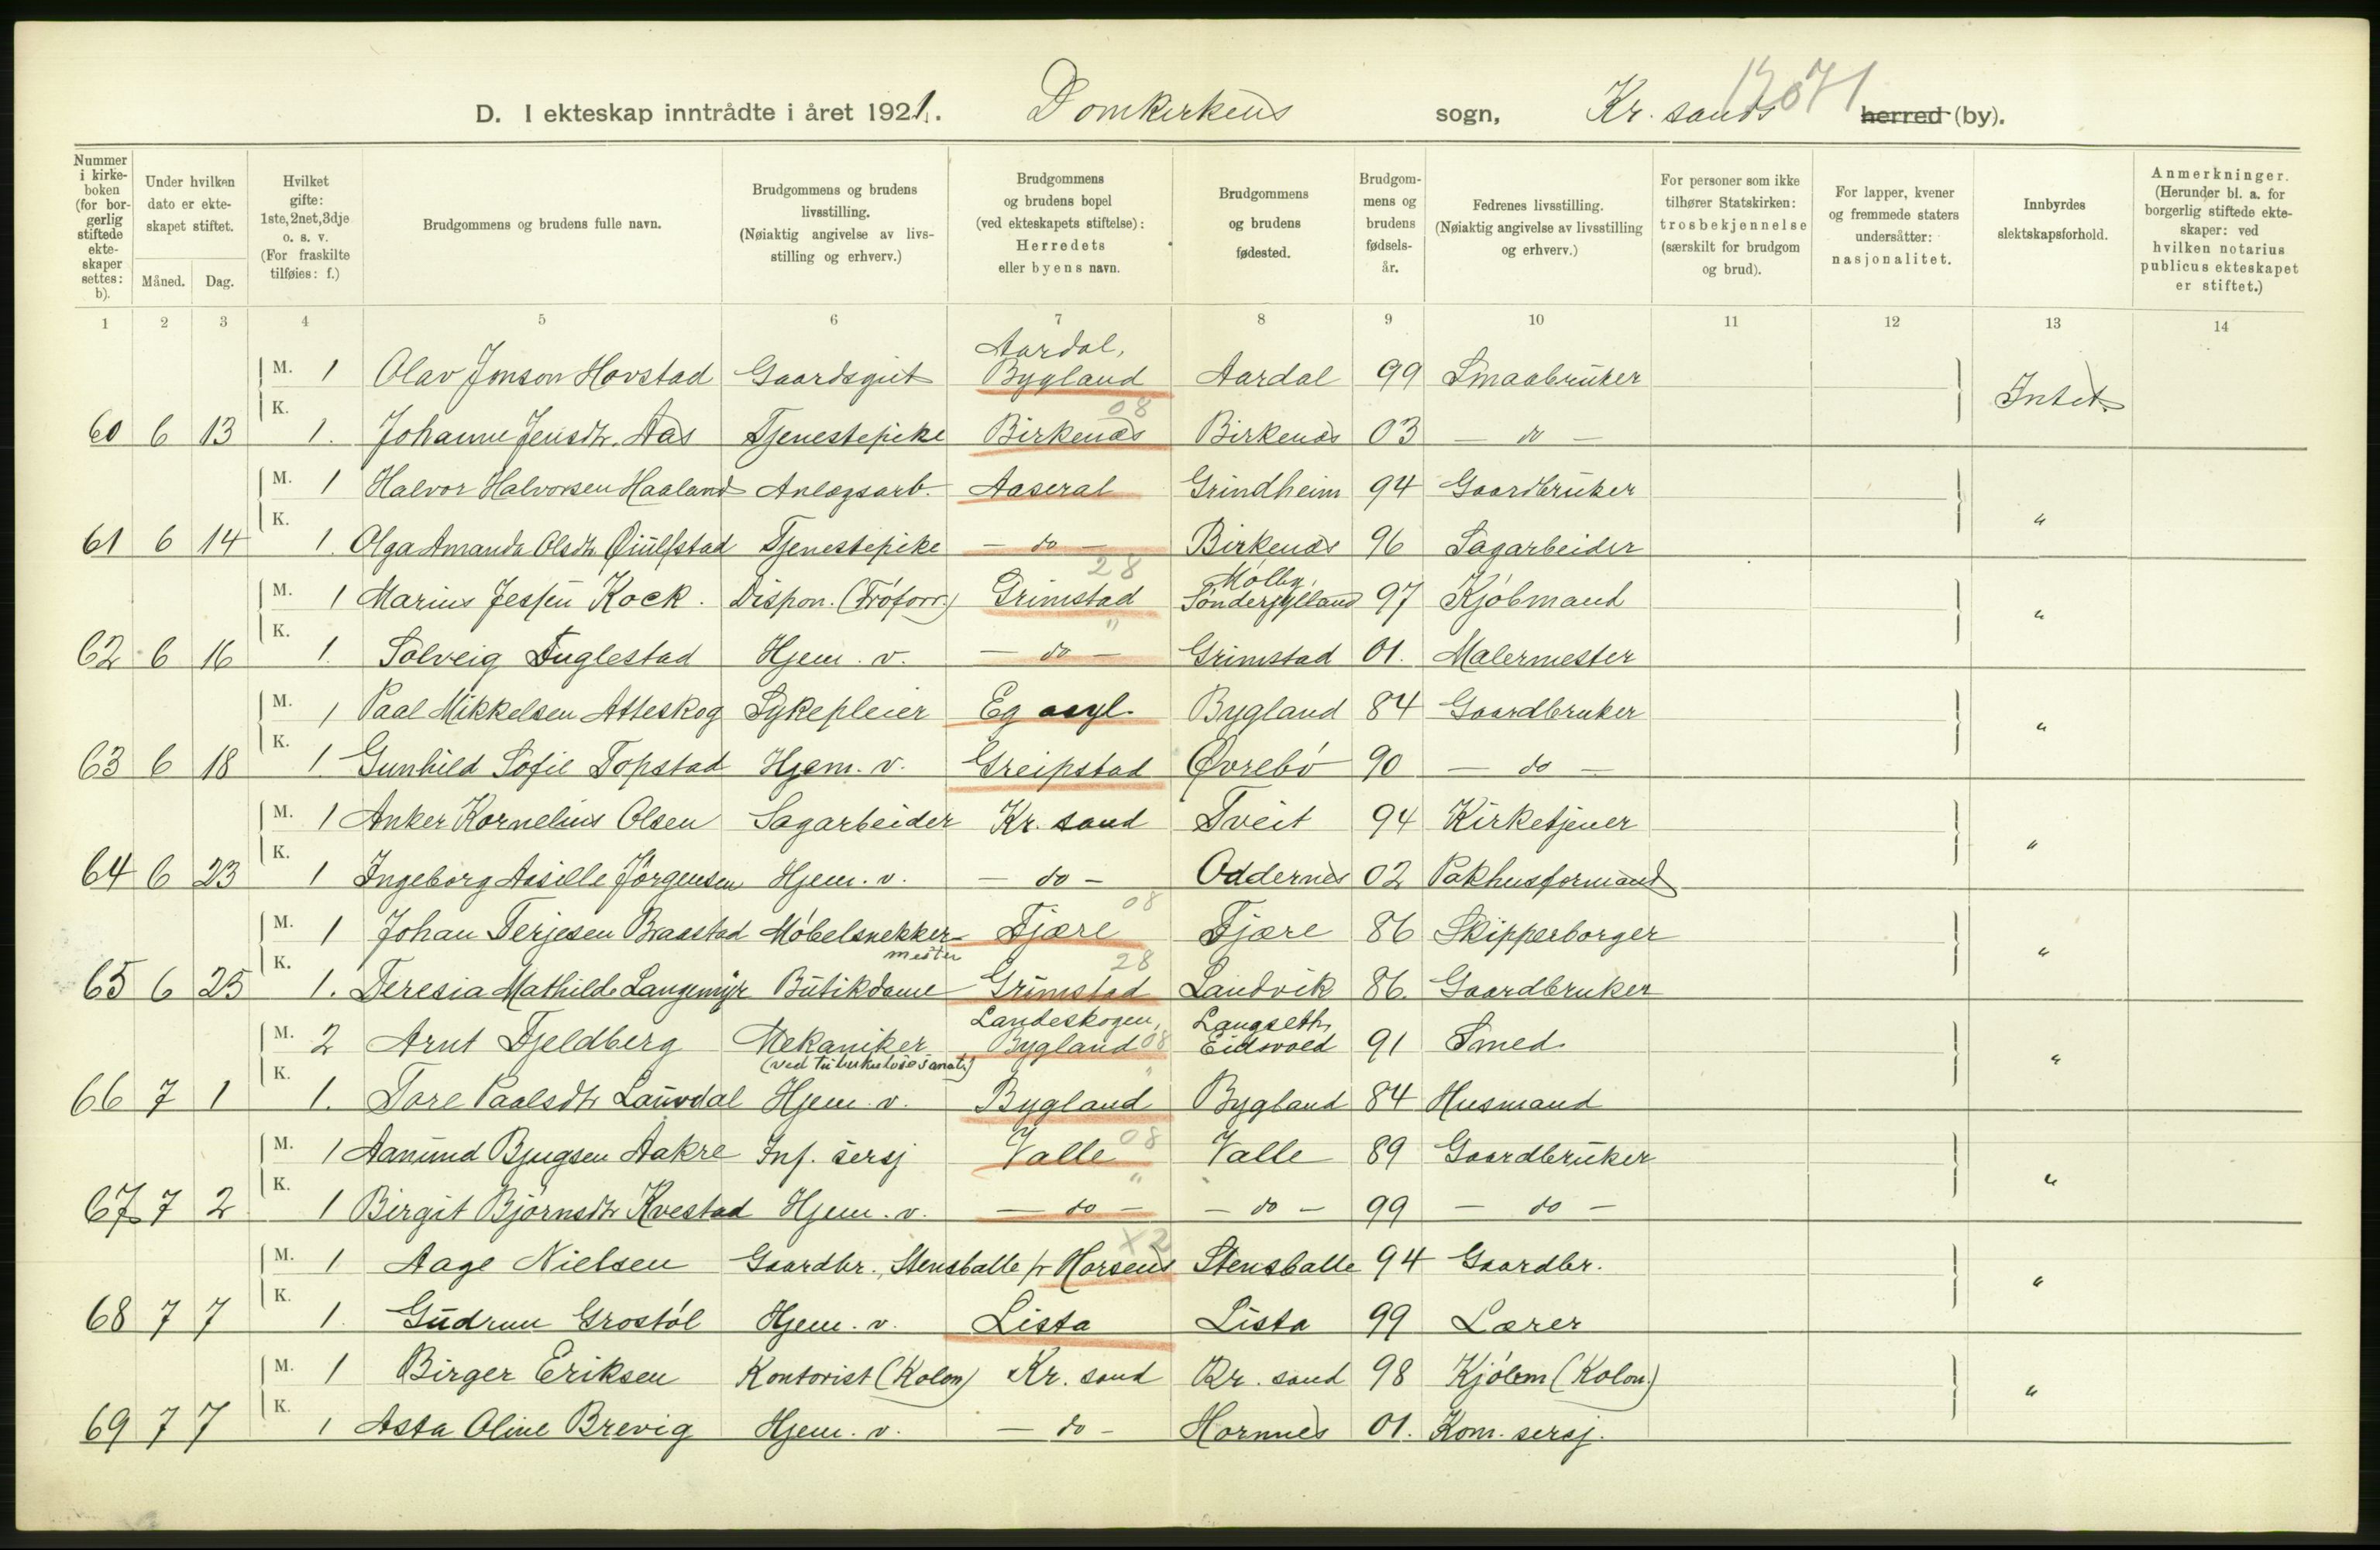 13071
D. I ekteskap inntrådte i året 1921. Domkirkens sogn, Kr. sands herred (by).
Nummer i kirkeboken (for borgerlig stiftede ekteskaper settes: b).
Under hvilken dato er ekteskapet stiftet.
Måned. Dag.
Hvilket gifte: 1ste, 2net, 3dje o. s. v. (For fraskilte tilføies: f.)
Brudgommens og brudens fulle navn.
Brudgommens og brudens livsstilling. (Nøiaktig angivelse av livsstilling og erhverv.)
Brudgommens og brudens bopel (ved ekteskapets stiftelse): Herredets eller byens navn.
Brudgommens og brudens fødested.
Brudgommens og brudens fødselsår.
Fedrenes livsstilling. (Nøiaktig angivelse av livsstilling og erhverv.)
For personer som ikke tilhører Statskirken: trosbekjennelse (særskilt for brudgom og brud).
For lapper, kvener og fremmede staters undersåtter: nasjonalitet.
Innbyrdes slektskapsforhold.
Anmerkninger. (Herunder bl. a. for borgerlig stiftede ekteskaper: ved hvilken notarius publicus ekteskapet er stiftet.)
1 2 3 4 5 6 7 8 9 10 11 12 13 14
M. 1 Olav Jonson Hovstad Gaardsgut Aardal, Bygland Aardal 99 Smaabruker Intet.
08
60 6 13 K. 1. Johanne Jensdtr. Aas Tjenestepike Birkenæs Birkenæs 03 — do —
M. 1 Halvor Halvorsen Haaland Anlægsarb. Aaseral Grindheim 94 Gaardbruker "
61 6 14 K. 1. Olga Amanda Olsdtr. Øiulfstad Tjenestepike — do — Birkenæs 96 Sagarbeider
28
M. 1 Marius Jessen Kock. Dispon. (Frøforr.) Grimstad Mölby, Sönderjylland 97 Kjöbmand "
62 6 16 K. 1. Solveig Fuglestad Hjem. v. — do — Grimstad 01. Malermester
M. 1 Paal Mikkelsen Atteskog Sykepleier Eg asyl. Bygland 84 Gaardbruker "
63 6 18 K. 1. Gunhild Sofie Topstad Hjem. v. Greipstad Øvrebö 90 — do —
M. 1 Anker Kornelius Olsen Sagarbeider Kr. sand Tveit 94 Kirketjener "
64 6 23 K. 1 Ingeborg Aasille Jörgensen Hjem. v. — do — Oddernes 02 Pakhusformand
08
M. 1 Johan Terjesen Braastad Möbelsnekkermester Fjære Fjære 86 Skipperborger "
28
65 6 25 K. 1. Teresia Mathilde Langemyr Butikdame Grimstad Landvik 86. Gaardbruker
M. 2 Arnt Fjeldberg Mekaniker (ved tuberkulosesanat.) Landeskogen, Bygland 08 Langseth, Eidsvold 91 Smed. "
66 7 1 K. 1. Tore Paalsdtr. Lauvdal Hjem. v. Bygland Bygland 84 Husmand
M. 1 Aanund Bjugsen Aakre Inf. sersj Valle 08 Valle 89 Gaardbruker "
67 7 2 K. 1 Birgit Björnsdtr. Kvestad Hjem. v. — do — — do — 99 — do —
x2
M. 1 Aage Nielsen Gaardbr., Stensballe pr Horsens Stensballe 94 Gaardbr. "
68 7 7 K. 1. Gudrun Grostöl Hjem. v. Lista Lista 99 Lærer
M. 1 Birger Eriksen Kontorist (Kolon) Kr. sand Kr. sand 98 Kjöbm (Kolon.) "
69 7 7 K. 1 Asta Oline Brevig Hjem. v. — do — Hornnes 01. Kom. sersj.